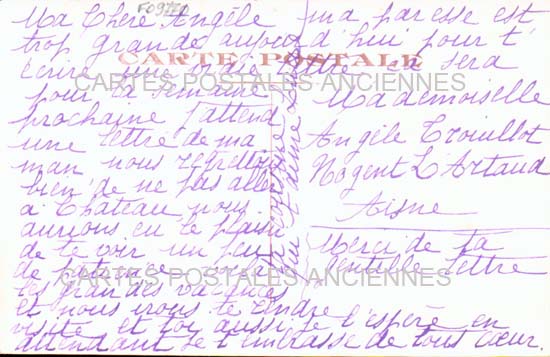 Ma Chère Angèle ma paresse est
trop grande aujourd'hui pour t'
écrire une lettre sera
pour la semaine
prochaine j'attend
une lettre de ma
man nous regrettons
bien de ne pas aller
à Chateau nous
aurions eu le plaisir
de te voir un peu
de patience
les grandes vacances
et nous irons te rendre
visite et toi aussi je l'espère en
attendant je t'embrasse de tout cœur.
CARTE POSTALE
Mademoiselle
Angèle Trouillot
Nogent L'Artaud
Aisne
Merci de ta
Gentille lettre
CARTES POSTALES ANCIENNES
CARTES POSTALES ANCIENNES